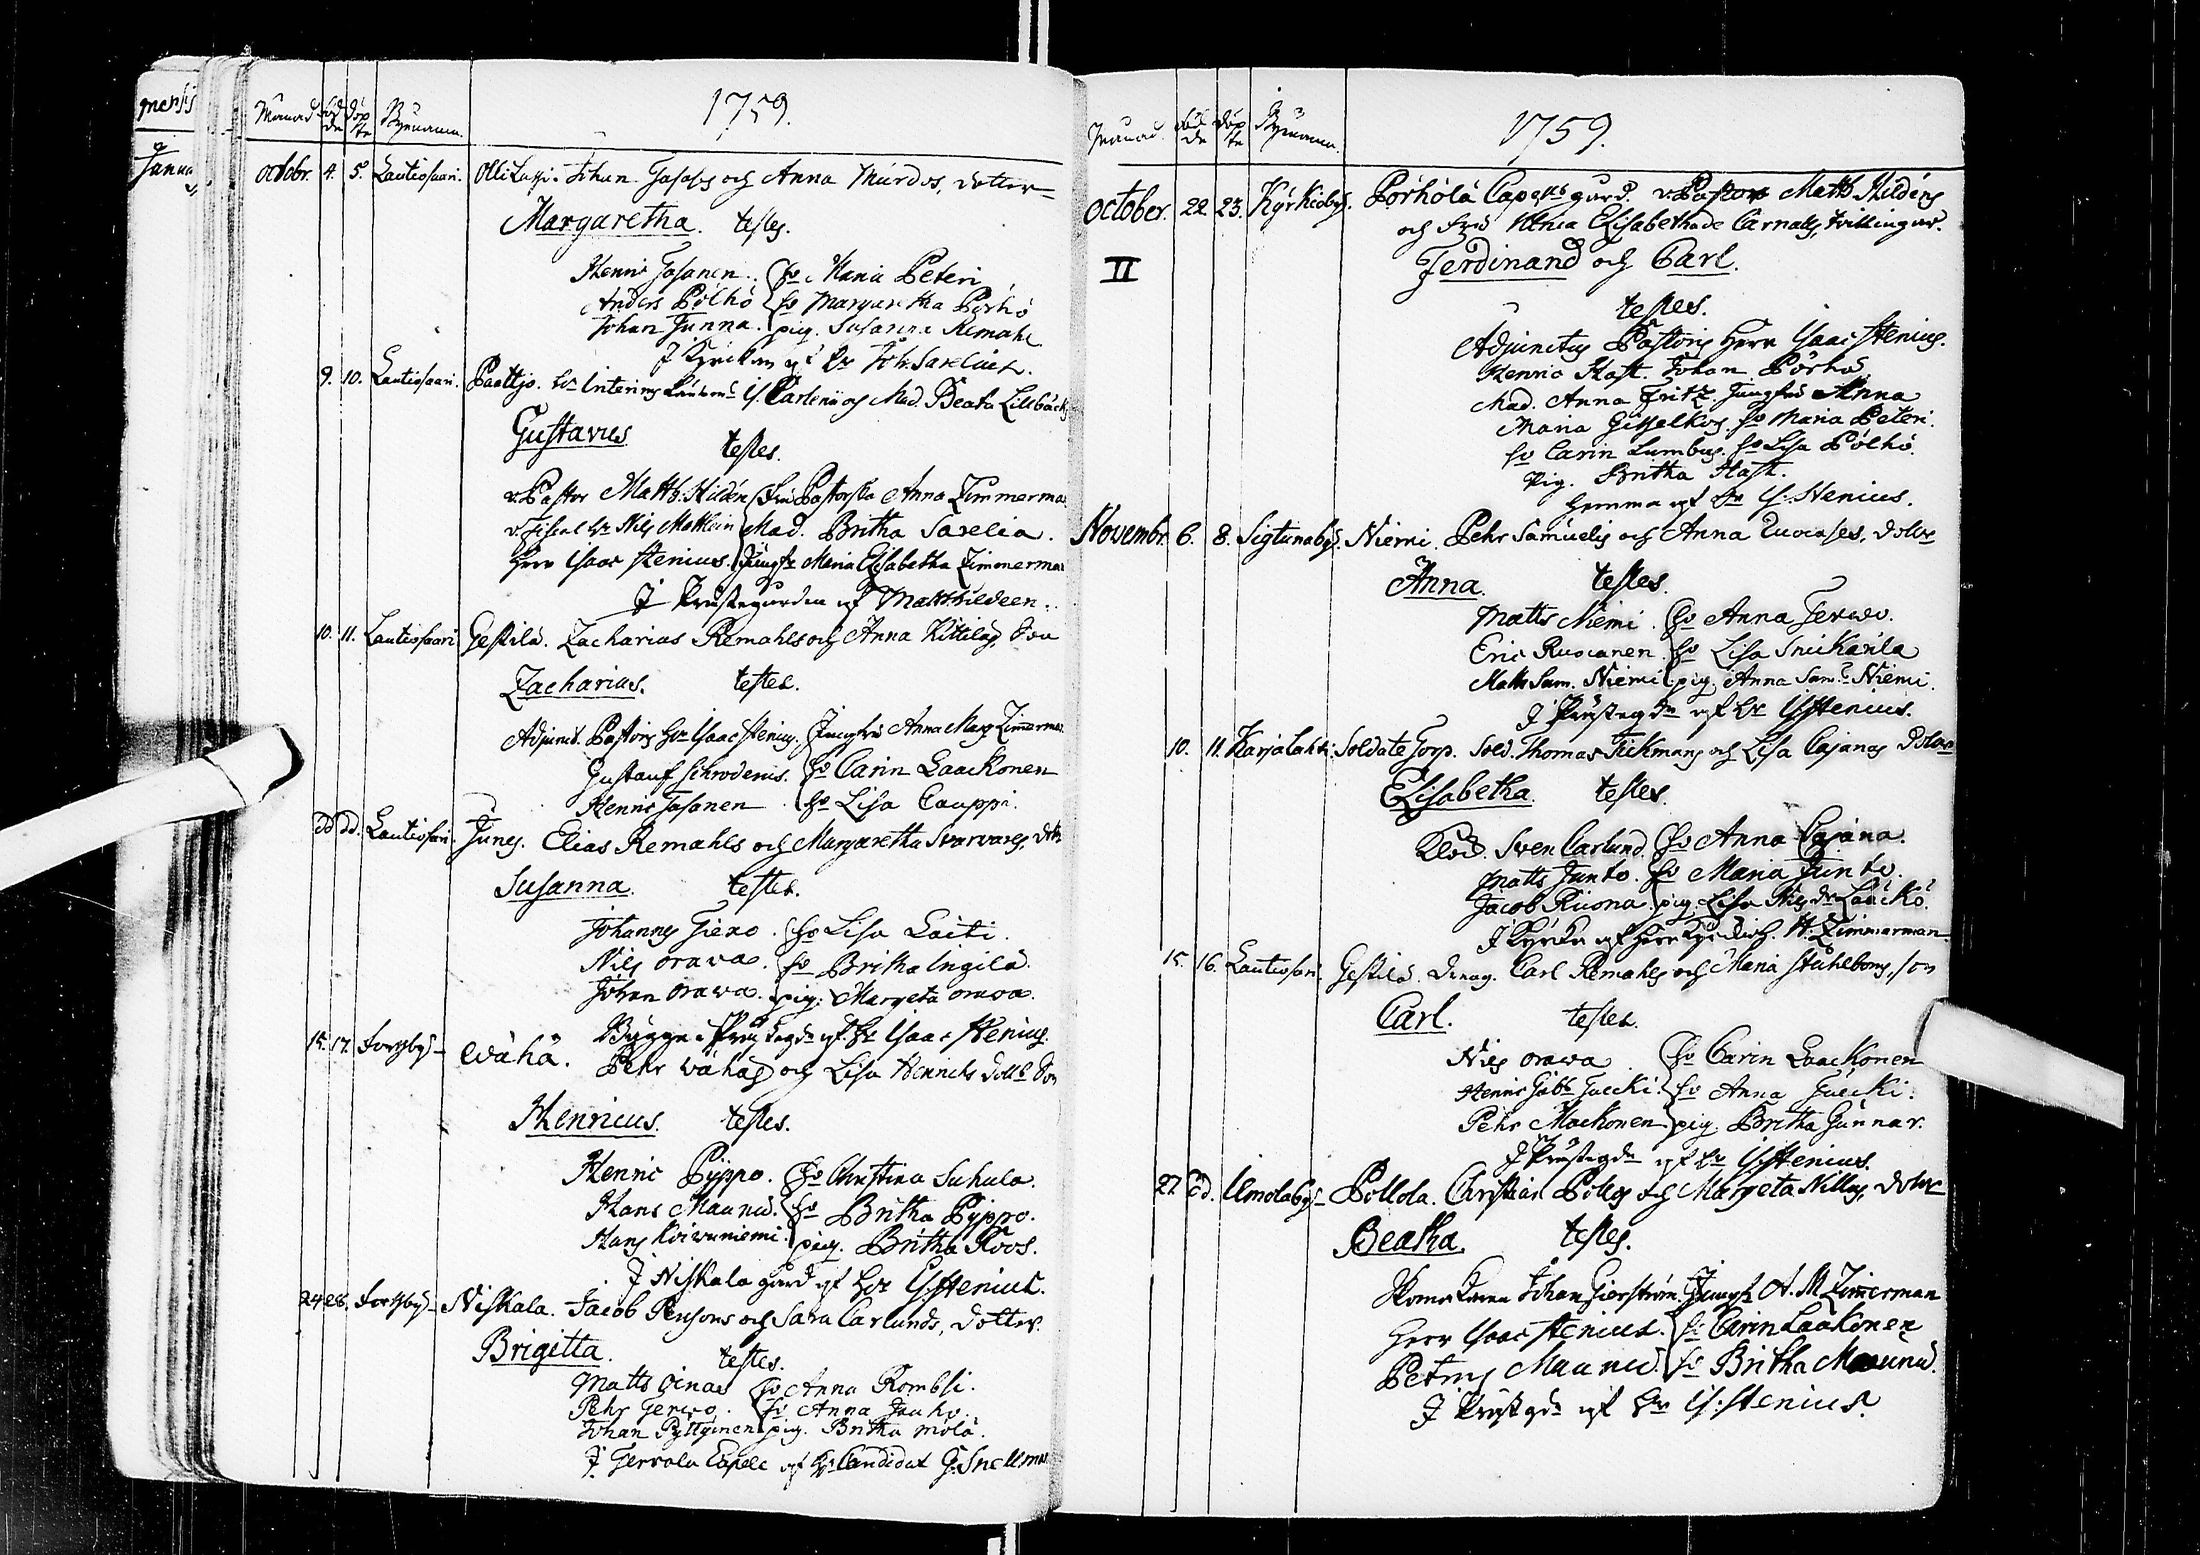 mensis
Janua
Månad föd de döp te Bynamn.
1759.
octobr. 4. 5. Lautiosaari. Olli Lassi. Johan Jasass och Anna Murdos, dotter
Margaretha. testes.
Henric Jasanen. ho Maria Peteri
Anders Pölhö ho Margaretha Pörhö
Johan Junna. pig. Susanna Remahl
J Kyrckan af Hr Joh. Saxelius.
9. 10. Lautiosaari. Paattjo. Hr Interims Länsm. Is. Carlenii och Mad. Beata Lillbäck
Gustavus testes.
v. Pastor Matth. Hildén Fru Pastorska Anna Zimmerman
v. Fiscal Hr Nils Mathlein Mad. Britha Saxelia.
Herr Isaac Stenius. Jungfr Maria Elisabetha Zimmerman
J Prästegården af Matth Hildeen.
10. 11. Lautiosaari Gestilä. Zacharias Remahls och Anna Kittiläs, Son
Zacharias. testes.
Adjunct. Pastoris Hr Isaac Stenius. Jungfru Anna Marg Zimerman
Gustaf Schroderus. ho Carin Laackonen
Henric Jasanen ho Lisa Cauppi.
dd dd. Lautiosari. Junes. Elias Remahls och Margaretha Svarvars, dotr
Susanna. testes.
Johannes Tiero. ho Lisa Laiti.
Nils orawa. ho Britha Ingilä.
Johan orawa. pig. Margeta orawa.
Bygge i Prästegdn af Hr Isaac Stenius.
15. 17. Forssby Wähä. Pehr Wähäs och Lisa Henrichs dotts Son
Henricus. testes.
Henric Pyppo. ho Christina Suhula.
Hans Maunu. ho Britha Pyppo.
Hans Koivuniemi. pig. Britha Roos.
J Niskala gård af Hr Is. Stenius.
24 28. Forssby Niskala. Jacob Pensons och Sara Carlunds, dotter.
Brigitta. testes.
Matts oinas ho Anna Rombsi.
Pehr Gerwo. ho Anna Jauho.
Johan Pyttyinen pig. Britha mölä.
J Tervola Capell af Hr Candidat G. Snellman
Månad. föd de döp te Bynamn.
1759.
October. 22 23. Kyrkioby. Pörhölä Capells gård. v. Pastor Matth. Hildéns
och Fru Maria Elisabetha de Carnalls, tvillingar.
II Ferdinand och Carl.
testes.
Adjunctus Pastoris Herr Isaac Stenius.
Henric Hast. Johan Pörhö
Mad. Anna Fritz. Jungfru Anna
Maria Gisselkors. ho Maria Peteri.
ho Carin Lumbus. ho Lisa Pölhö.
Pig. Britha Hast.
hemma af Hr Is. Stenius.
Novembr. 6. 8. Sigtunaby. Niemi. Pehr Samuelis och Anna Ruonases, dotter
Anna. testes.
Matts Niemi. ho Anna Gerwo.
Eric Ruonanen. ho Lisa Snickarila
Matts Sam. Niemi pig. Anna Sam. dr Niemi.
J Prästegdn af Hr Is Stenius.
10. 11. Karjalahti. Soldate Torp. Sold. Thomas Fickmans och Lisa Cajanas dotter
Elisabetha. testes.
Sven Carlund. ho Anna Cajana.
Matts Junto. ho Maria Junto.
Jacob Ruona. pig. Lisa Nils dr Laackö.
J Kyrckan af Herr H. Zimmerman.
15. 16. Lautiosari. Gestilä. dräng. Carl Remahls och Maria Stahlborgs, son
Carl. testes.
Nils orawa ho Carin Laackonen
Henric Gabr Juecki. ho Anna Juecki.
Pehr Mackonen pig. Britha Gunnar.
J Prästegdn af Hr Is Stenius.
27. dd. Umolaby Pollola. Christian Pollos och Margeta Nillus, dotter
Beatha. testes.
Johan Gierström. Jungfr A. M Zimmerman
Herr Isaac Stenius. ho Carin Laakonen
Petrus Maunu. ho Britha Maunu.
J Prästgdn af Hr Is: Stenius.